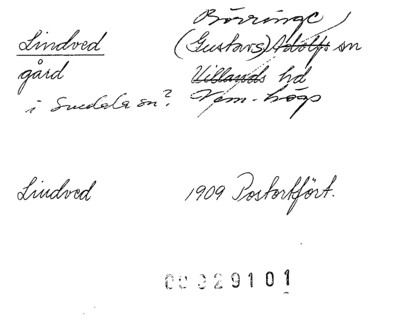 Börringe
Lindved (Gustavs) Adolfs sn
gård Villands hd
i Svedala sn? Vem.-högs
Lindved 1909 Postortfört.
00029101